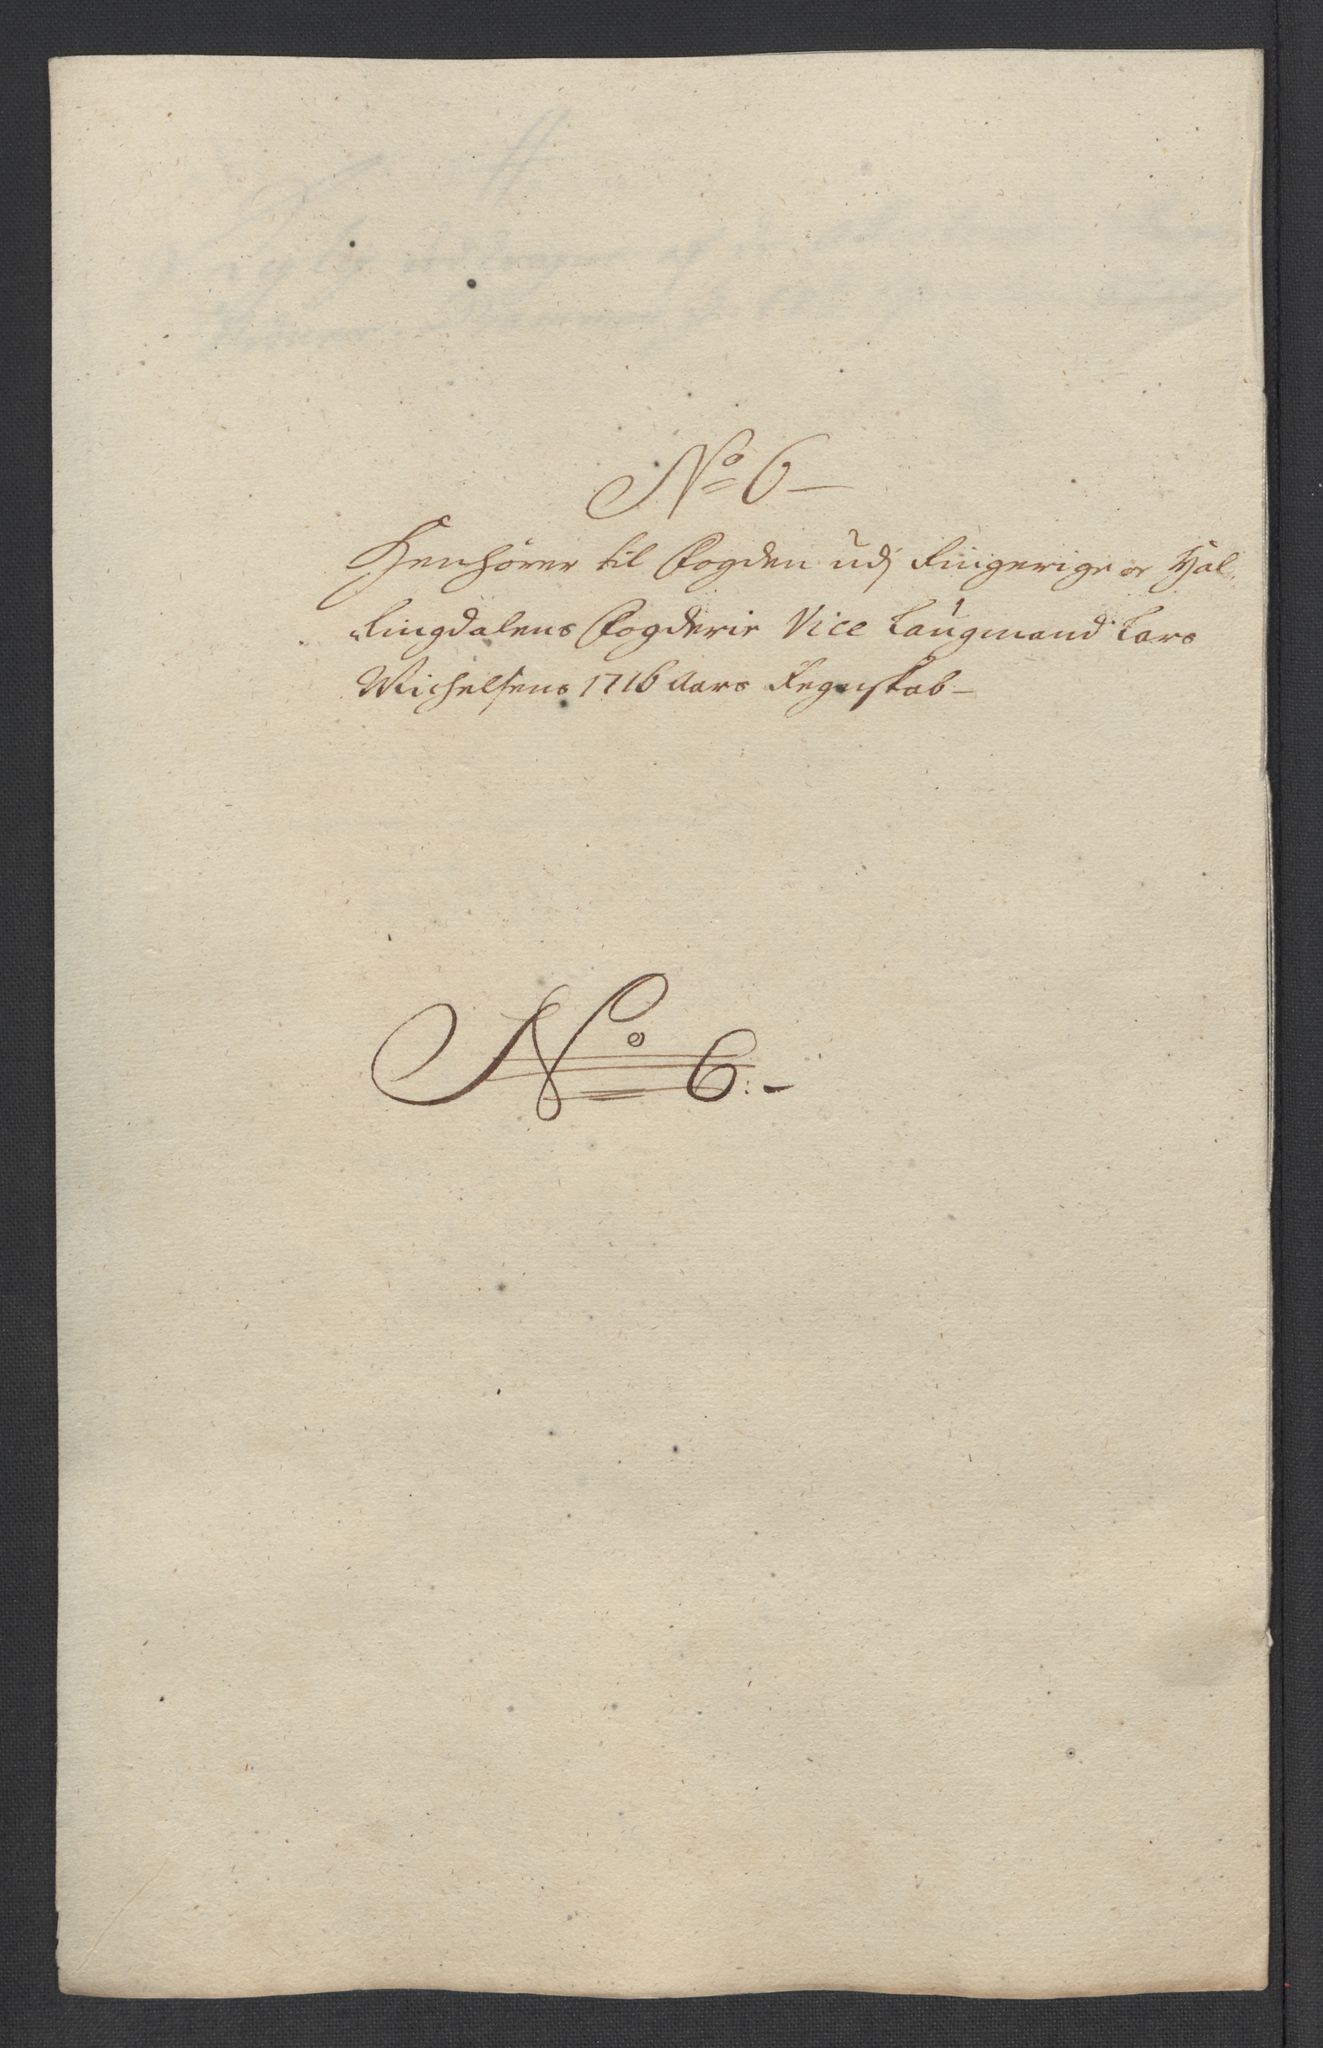 No 6
Henhörer til Fogden udj Ringerige oc Hal-
lingdalens Fogderie Vice Laugmand Lars
Michelsens 1716 Aars Regnskab
No 6.